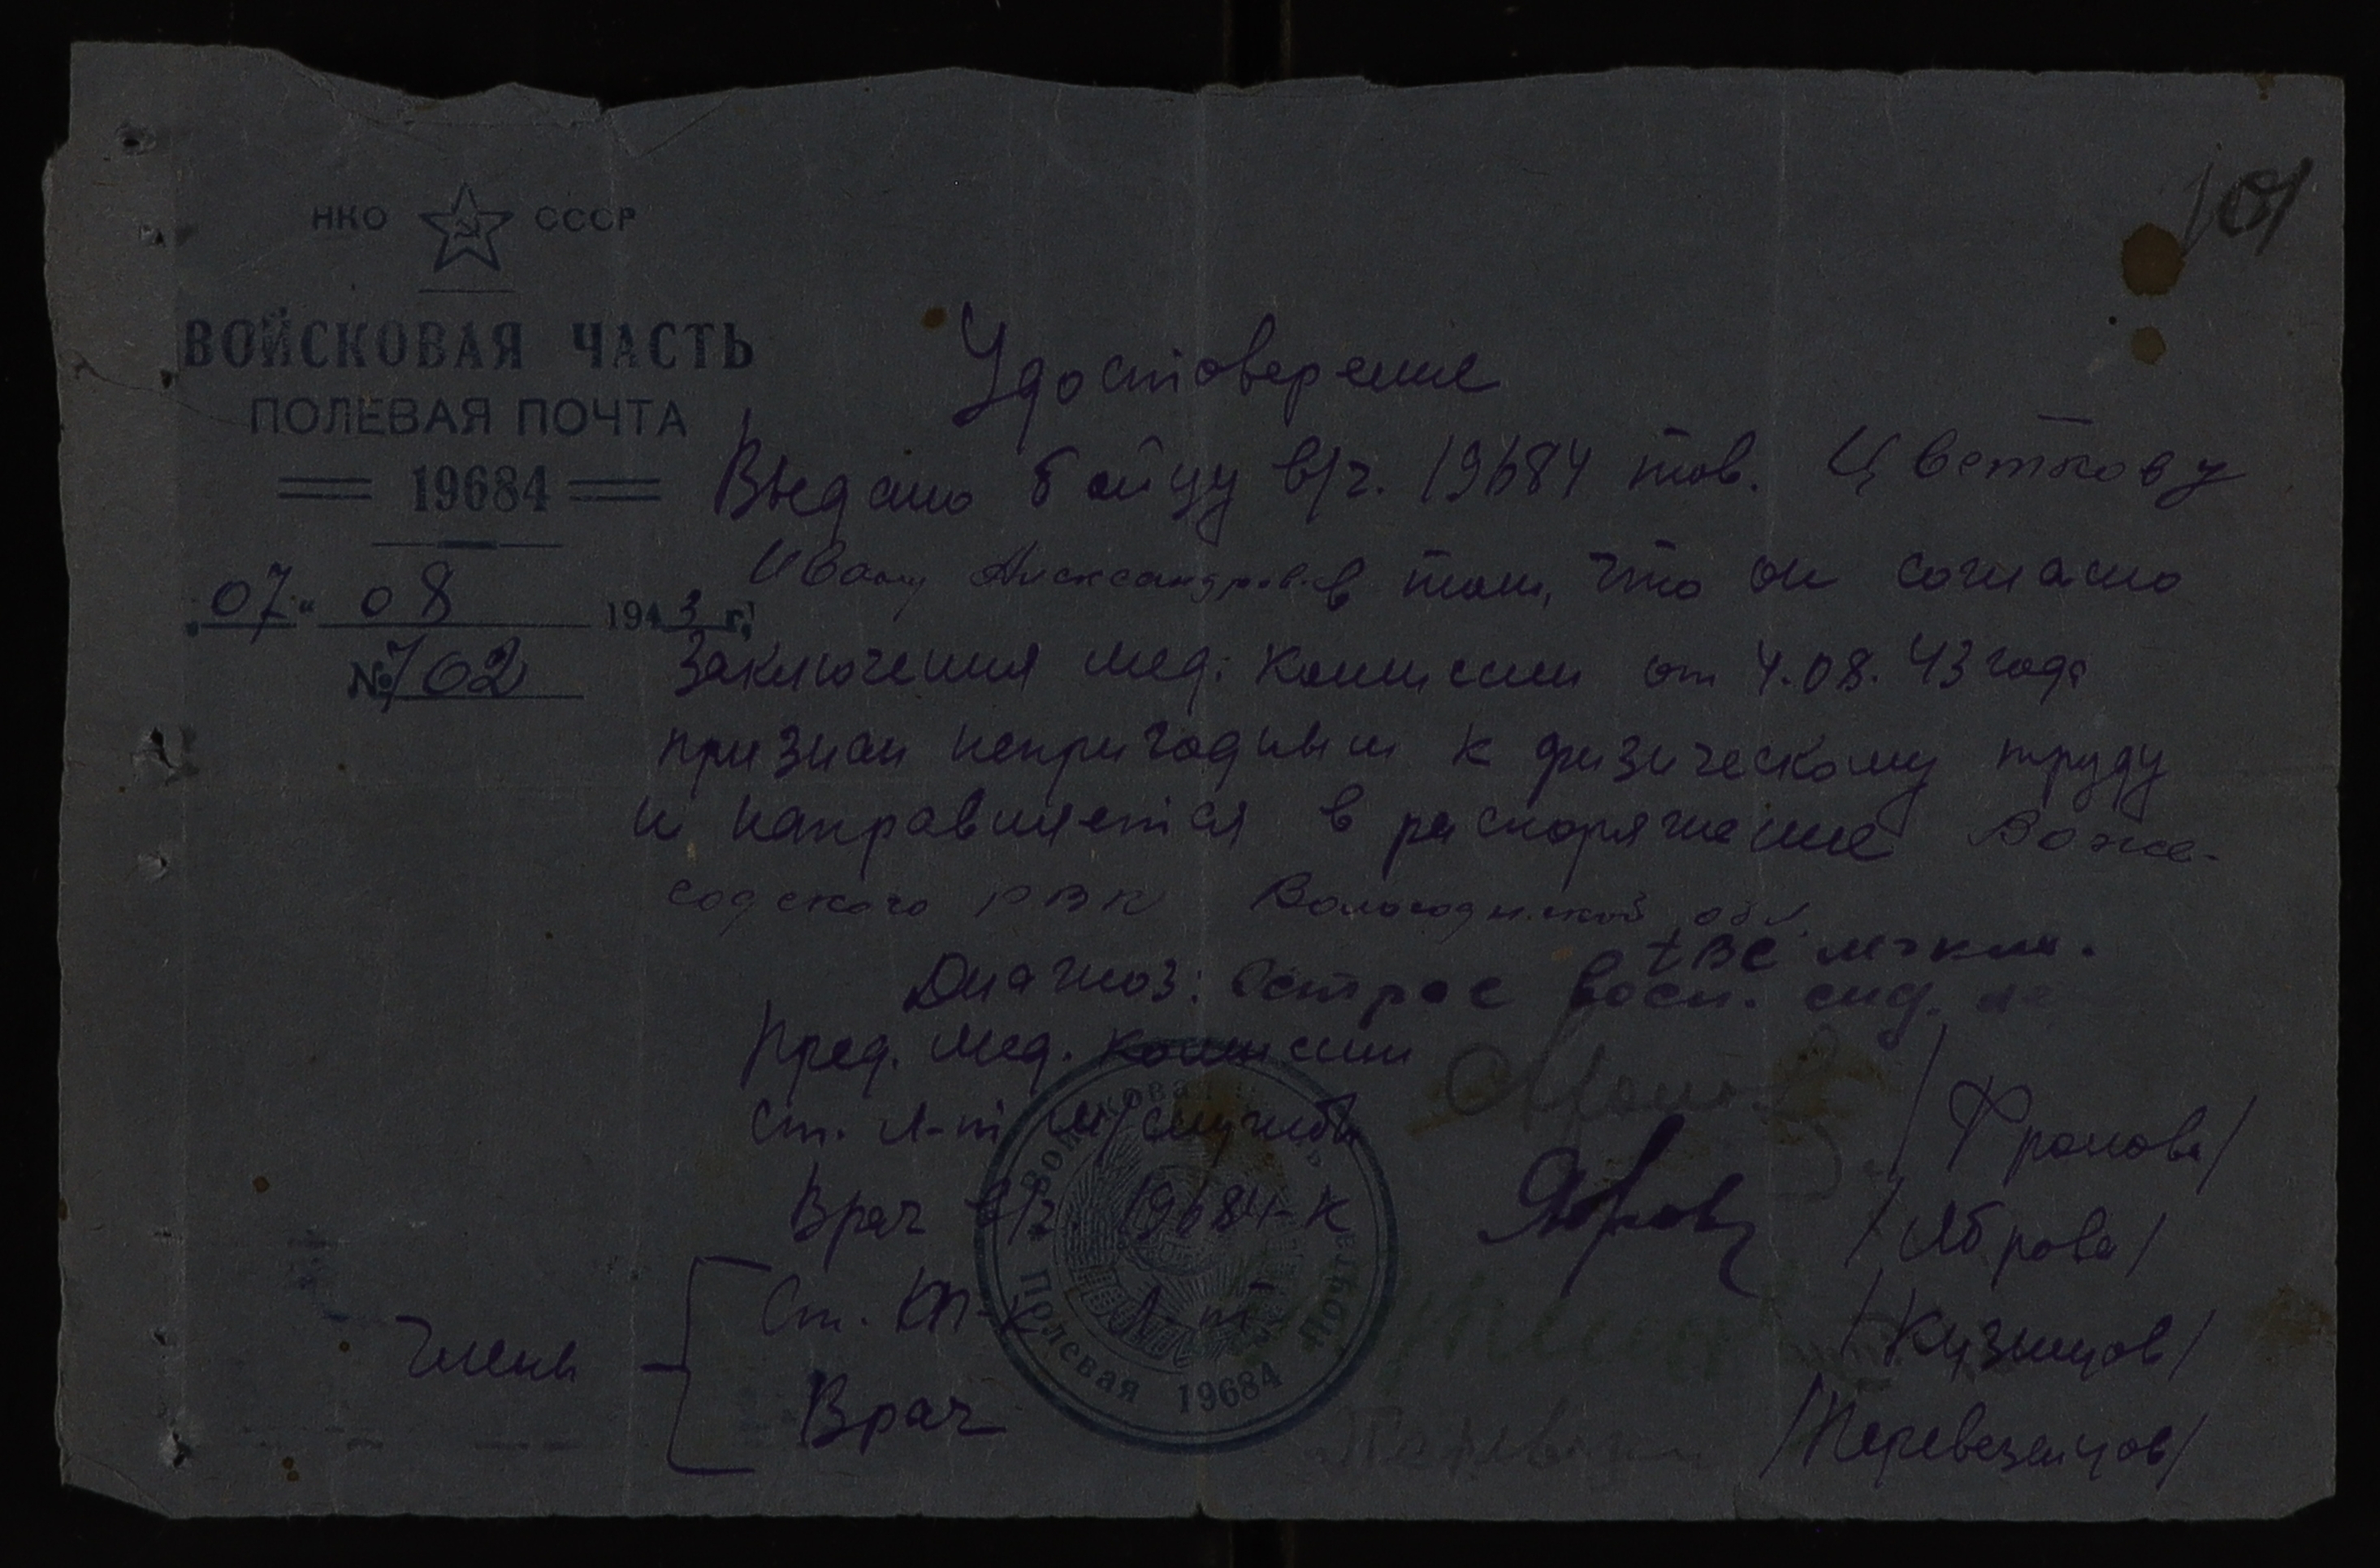 101
НКО СССР
ВОЙСКОВАЯ ЧАСТЬ
ПОЛЕВАЯ ПОЧТА
19684
07 " 08 1943 г.
№ 702
Удостоверение
Выдано бойцу в/ч. 19684 тов. Цветкову
Ивану Александров. в том, что он согласно
заключения мед. комиссии от 4.08.43 года
признан непригодным к физическому труду
и направляется в распоряжение Воже-
годского РВК Вологодской обл.
tвс легких.
Диагноз: Острое восп. сид.
Пред. мед. комиссии
Ст. л-т м/службы /Фролова/
Врач в/ч. 19684-К /Яброва/
Члены
Ст. л-т /Кузнецов/
Врач /Перевезенцов/
Войсковая часть
Полевая Почта 19684